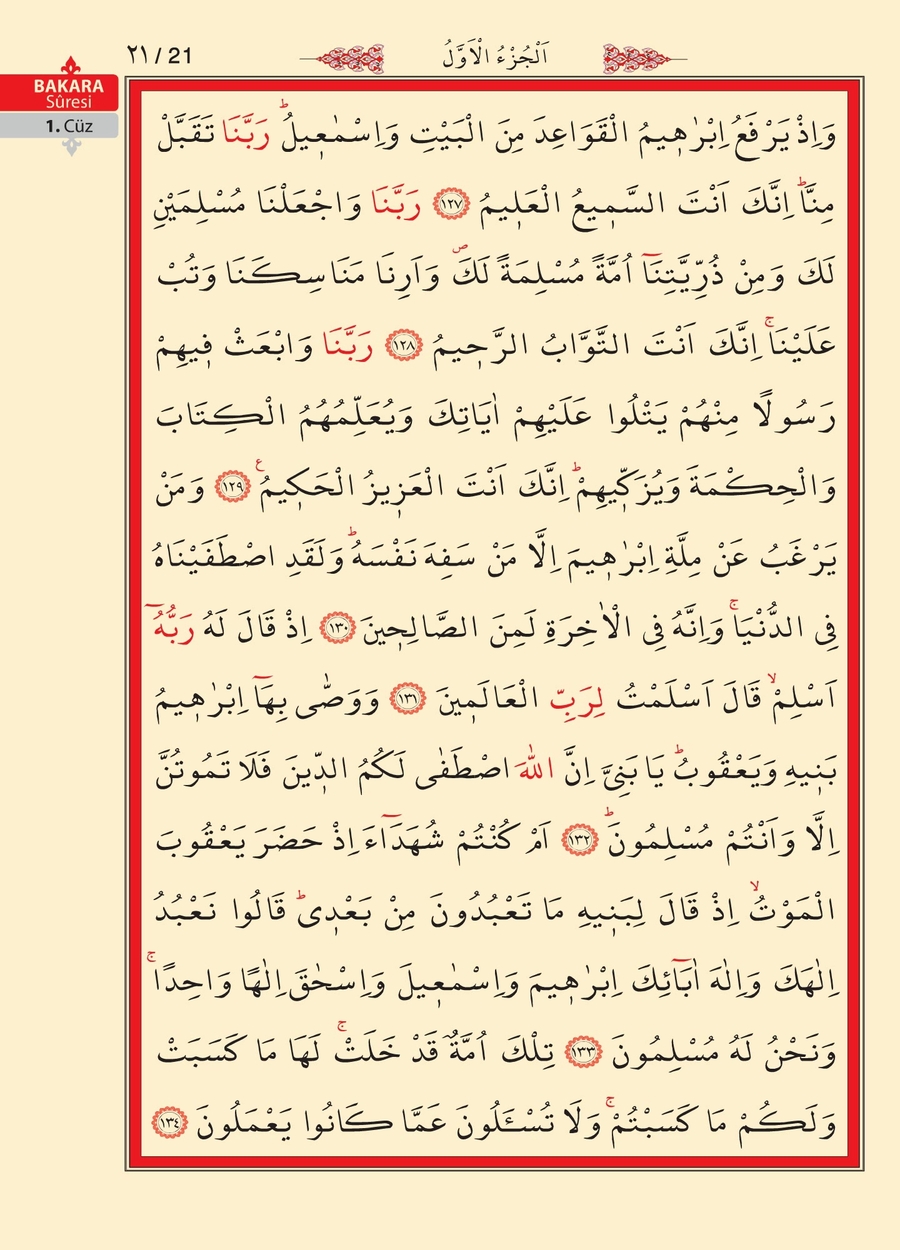 ٢١ / 21
اَلْجُزْءُ الْاَوَّلُ
BAKARA
Sûresi
1. Cüz
وَاِذْ يَرْفَعُ اِبْرٰهٖيمُ الْقَوَاعِدَ مِنَ الْبَيْتِ وَاِسْمٰعٖيلُؕ رَبَّنَا تَقَبَّلْ
مِنَّاؕ اِنَّكَ اَنْتَ السَّمٖيعُ الْعَلٖيمُ ﴿١٢٧﴾ رَبَّنَا وَاجْعَلْنَا مُسْلِمَيْنِ
لَكَ وَمِنْ ذُرِّيَّتِنَٓا اُمَّةً مُسْلِمَةً لَكَۖ وَاَرِنَا مَنَاسِكَنَا وَتُبْ
عَلَيْنَاۚ اِنَّكَ اَنْتَ التَّوَّابُ الرَّحٖيمُ ﴿١٢٨﴾ رَبَّنَا وَابْعَثْ فٖيهِمْ
رَسُولًا مِنْهُمْ يَتْلُوا عَلَيْهِمْ اٰيَاتِكَ وَيُعَلِّمُهُمُ الْكِتَابَ
وَالْحِكْمَةَ وَيُزَكّٖيهِمْؕ اِنَّكَ اَنْتَ الْعَزٖيزُ الْحَكٖيمُ ع ﴿١٢٩﴾ وَمَنْ
يَرْغَبُ عَنْ مِلَّةِ اِبْرٰهٖيمَ اِلَّا مَنْ سَفِهَ نَفْسَهُؕ وَلَقَدِ اصْطَفَيْنَاهُ
فِى الدُّنْيَاۚ وَاِنَّهُ فِى الْاٰخِرَةِ لَمِنَ الصَّالِحٖينَ ﴿١٣٠﴾ اِذْ قَالَ لَهُ رَبُّهُٓ
اَسْلِمْۙ قَالَ اَسْلَمْتُ لِرَبِّ الْعَالَمٖينَ ﴿١٣١﴾ وَوَصّٰى بِهَٓا اِبْرٰهٖيمُ
بَنٖيهِ وَيَعْقُوبُؕ يَا بَنِىَّ اِنَّ اللّٰهَ اصْطَفٰى لَكُمُ الدّٖينَ فَلَا تَمُوتُنَّ
اِلَّا وَاَنْتُمْ مُسْلِمُونَؕ ﴿١٣٢﴾ اَمْ كُنْتُمْ شُهَدَٓاءَ اِذْ حَضَرَ يَعْقُوبَ
الْمَوْتُۙ اِذْ قَالَ لِبَنٖيهِ مَا تَعْبُدُونَ مِنْ بَعْدٖىؕ قَالُوا نَعْبُدُ
اِلٰهَكَ وَاِلٰهَ اٰبَٓائِكَ اِبْرٰهٖيمَ وَاِسْمٰعٖيلَ وَاِسْحٰقَ اِلٰهًا وَاحِدًاۚ
وَنَحْنُ لَهُ مُسْلِمُونَ ﴿١٣٣﴾ تِلْكَ اُمَّةٌ قَدْ خَلَتْۚ لَهَا مَا كَسَبَتْ
وَلَكُمْ مَا كَسَبْتُمْۚ وَلَا تُسْـَٔلُونَ عَمَّا كَانُوا يَعْمَلُونَ ﴿١٣٤﴾